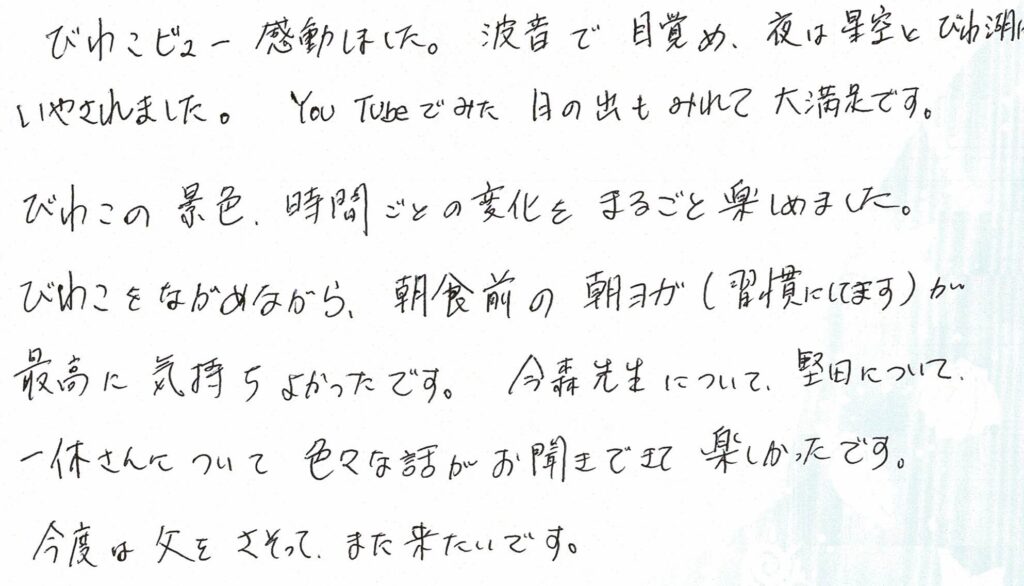 びわこビュー 感動しました。 波音で 目覚め、夜は星空と びわ湖に
いやされました。 YouTubeでみた 日の出も みれて 大満足です。
びわこの 景色、時間ごとの変化を まるごと楽しめました。
びわこをながめながら、朝食前の 朝ヨガ(習慣にしてます)が
最高に 気持ちよかったです。 今森先生について、堅田について、
一休さんについて 色々な話がお聞きできて 楽しかったです。
今度は 父を さそって、また来たいです。